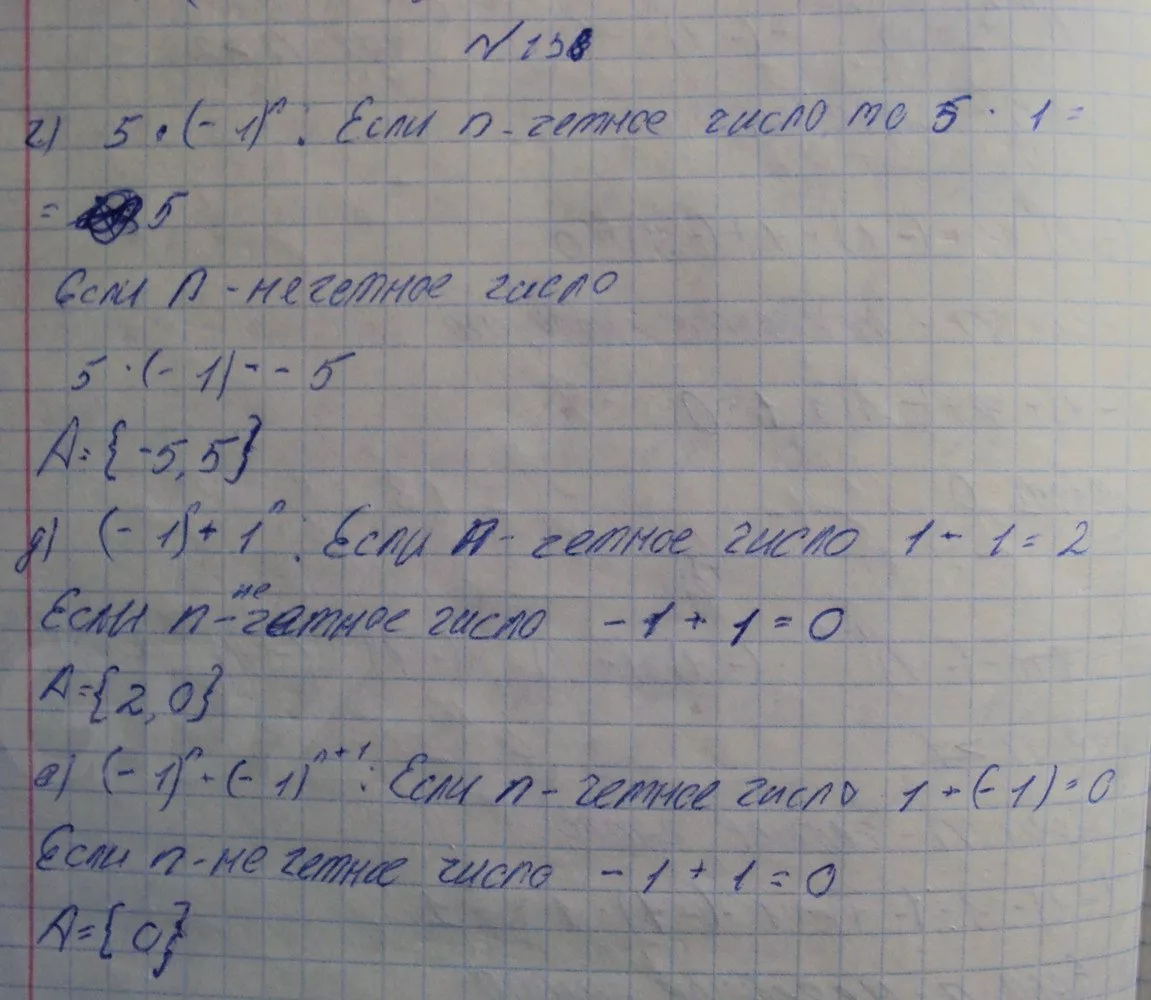 № 138
г) 5 · (-1)ⁿ: Если n-четное число то 5 · 1 =
= 5
Если n - нечетное число
5 · (-1) = -5
A = {-5, 5}
д) (-1)ⁿ + 1ⁿ: Если n - четное число 1 + 1 = 2
Если n - нечетное число -1 + 1 = 0
A = {2, 0}
е) (-1)ⁿ + (-1)ⁿ⁺¹: Если n - четное число 1 + (-1) = 0
Если n - нечетное число -1 + 1 = 0
A = {0}